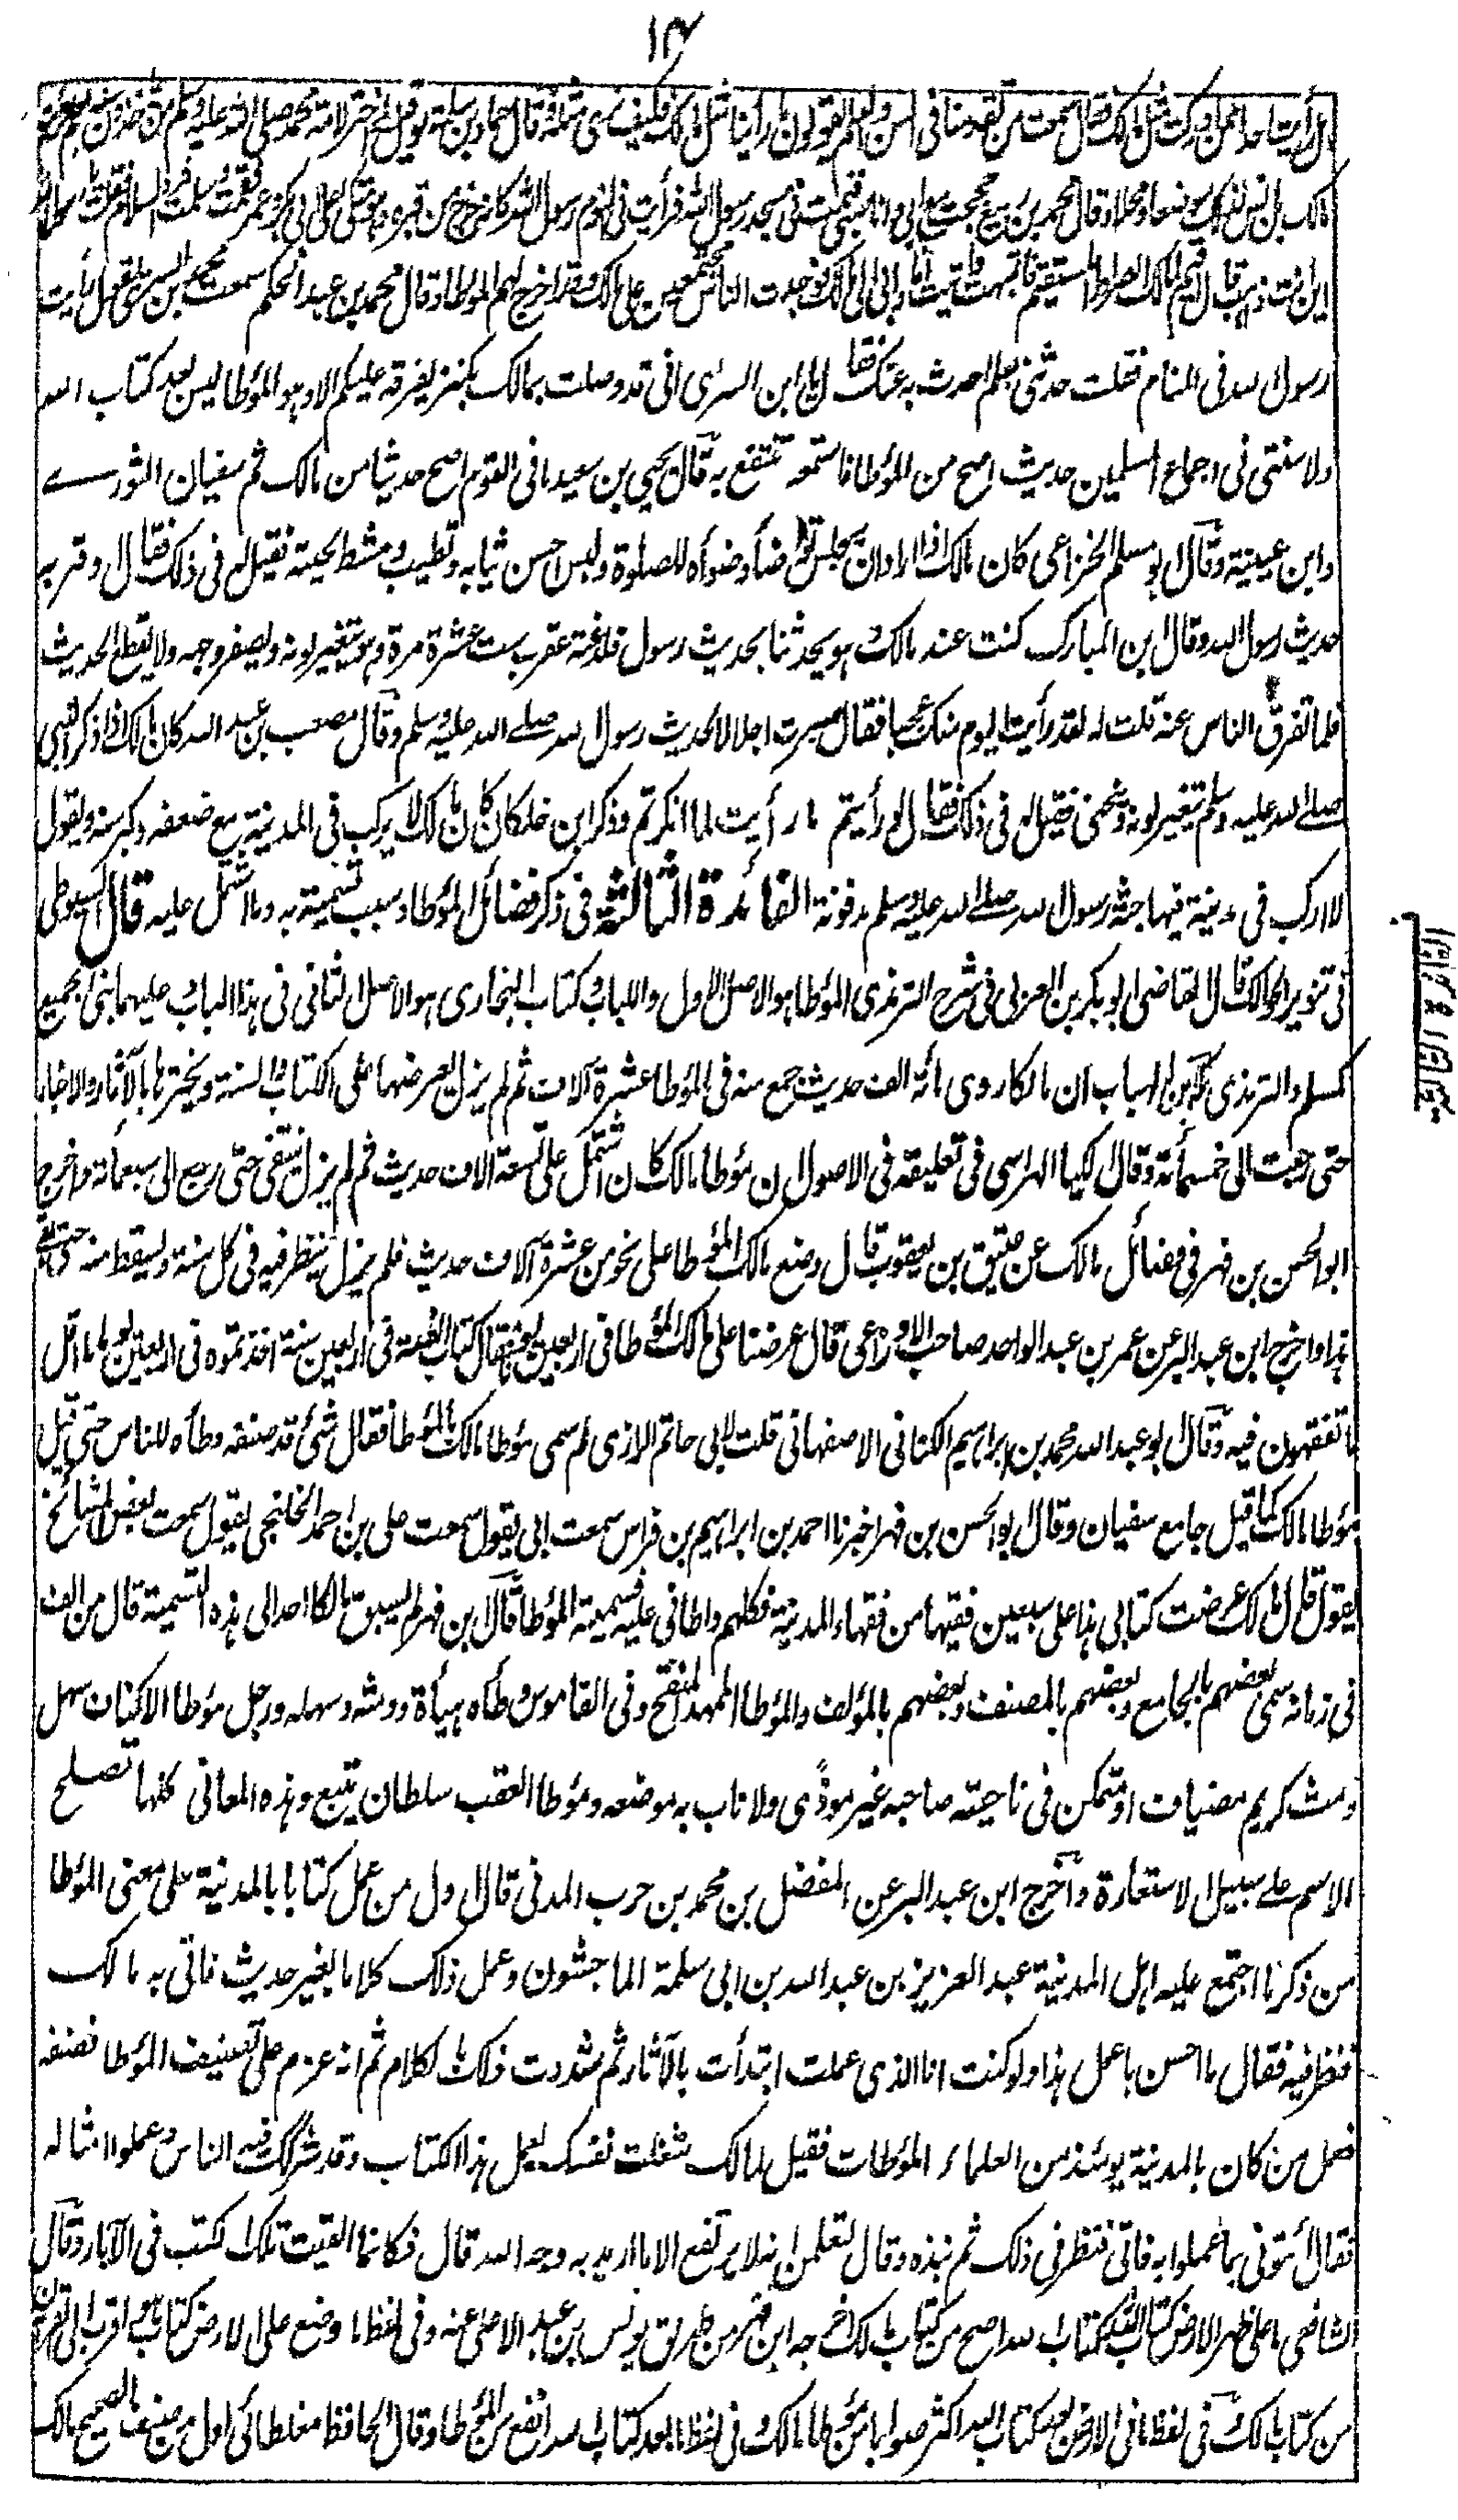 ١٤
هل رأيت احدا ممن ادركت مثل مالك فقال سمعت من تقدمنا في السن والعلم يقولون ما رأينا مثل مالك فكيف نرى مثله وقال حماد بن سلمة لو قيل لي اختر لامة محمد صلى الله عليه وسلم من
مالك بن انس لذلك موضعا ومحلا وقال محمد بن رمح حججت مع ابي وانا صبي فنمت في مسجد رسول الله فرأيت في النوم رسول الله كانه خرج من قبره وهو متكئ على ابي بكر وعمر فقمت وسلمت فرد السلام فقلت يا رسول الله
اين انت ذاهب قال اقيم لمالك الصراط المستقيم فانتبهت واتيت انا وابي الى مالك فوجدت الناس مجتمعين على مالك وقد اخرج لهم الموطا وقال محمد بن عبد الحكم سمعت محمد بن السري يقول رأيت
رسول الله في المنام فقلت حدثني بعلم احدث به عنك فقال يا ابن السرى اني قد وصلت بمالك بكنز يفرقه عليكم الا وهو المؤطا ليس بعد كتاب الله
ولا سنتي في اجماع المسلمين حديث اصح من المؤطا فاستمعه تنتفع به قال يحيى بن سعيد ما في القوم اصح حديثا من مالك ثم سفيان الثوري
وابن عيينة وقال ابو مسلم الخزاعى كان مالك اذا اراد ان يجلس توضأ وضوأه للصلوة ولبس احسن ثيابه وتطيب ومشط لحيته فقيل له فى ذلك فقال اوقر به
حديث رسول الله وقال ابن المبارك كنت عند مالك وهو يحدثنا بحديث رسول فلدغته عقرب ست عشرة مرة وهو يتغير لونه ويصفر وجهه ولا يقطع الحديث
فلما تفرق الناس عنه قلت له لقد رأيت اليوم منك عجبا فقال صبرت اجلالا لحديث رسول الله صلے الله عليه وسلم وقال مصعب بن عبد الله كان مالك اذا ذكر النبي
صلے الله عليه وسلم يتغير لونه وينحنى فقيل له فى ذلك فقال لو رأيتم ما رأيت لما انكرتم وذكر ابن خلكان كان مالك لا يركب فى المدينة مع ضعفه وكبر سنه ويقول
لا اركب فى مدينة فيها جثة رسول الله صلے الله عليه وسلم مدفونة الفائدة الثالثة فى ذكر فضائل المؤطا وسبب تسميته به وما اشتمل عليه قال السيوطى
فى تنوير الحوالك قال القاضى ابو بكر بن العربى فى شرح الترمذى المؤطا هو الاصل الاول واللباب وكتاب البخارى هو الاصل الثانى فى هذا الباب وعليهما بنى الجميع
كمسلم والترمذى وذكر ابن الهباب ان مالكا روى مائة الف حديث جمع منه فى المؤطا عشرة آلاف ثم لم يزل يعرضها على الكتاب والسنة ويختبرها بالآثار والاخبار
حتى رجعت الى خمسمائة وقال الكيا الهراسى فى تعليقه فى الاصول ان مؤطا مالك كان اشتمل على تسعة الاف حديث ثم لم يزل ينتقى حتى رجع الى سبعمائة واخرج
ابو الحسن بن فهر فى فضائل مالك عن عتيق بن يعقوب قال وضع مالك المؤطا على نحو من عشرة آلاف حديث فلم يزل ينظر فيه فى كل سنة ويسقط منه حتى بقى
هذا واخرج ابن عبد البر عن عمر بن عبد الواحد صاحب الاوزاعى قال عرضنا على مالك المؤطا فى اربعين يوما فقال كتاب الفته فى اربعين سنة اخذتموه فى اربعين يوما ما اقل
ما تفقهون فيه وقال ابو عبد الله محمد بن ابراهيم الكنانى الاصفهانى قلت لابى حاتم الرازى لم سمى مؤطا مالك بالمؤطا فقال شئ قد صنفه وطأه للناس حتى قيل
مؤطا مالك كما قيل جامع سفيان وقال ابو الحسن بن فهر اخبرنا احمد بن ابراهيم بن فراس سمعت ابى يقول سمعت على بن احمد الخلنجى يقول سمعت بعض المشائخ
يقول قال مالك عرضت كتابى هذا على سبعين فقيها من فقهاء المدينة فكلهم واطأنى عليه فسميته المؤطا قال ابن فهر لم يسبق مالكا احد الى هذه التسمية قال من الف
فى زمانه سمى بعضهم بالجامع وبعضهم بالمصنف وبعضهم بالمؤلف والمؤطا الممهد المنقح وفى القاموس وطأه هيأة ودمثه وسهله ورجل مؤطا الاكناف سهل
دمث كريم مضياف او يتمكن فى ناحيته صاحبه غير موذًى ولا ناب به موضعه ومؤطا العقب سلطان يتبع وهذه المعانى كلها تصلح
الاسم علے سبيل الاستعارة واخرج ابن عبد البر عن المفضل بن محمد بن حرب المدنى قال اول من عمل كتابا بالمدينة على معنى المؤطا
من ذكر ما اجتمع عليه اهل المدينة عبد العزيز بن عبد الله بن ابى سلمة الماجشون وعمل ذلك كلاما بغير حديث فاتى به مالك
فنظر فيه فقال ما احسن ما عمل هذا ولو كنت انا الذى عملت ابتدأت بالآثار ثم شددت ذلك بالكلام ثم انه عزم على تصنيف المؤطا فصنفه
فعمل من كان بالمدينة يومئذ من العلماء المؤطات فقيل لمالك شغلت نفسك بعمل هذا الكتاب وقد شركك فيه الناس وعملوا امثاله
فقال ائتونى بما عملوا به فاتى فنظر فى ذلك ثم نبذه وقال لتعلمن انه لا يرتفع الا ما اريد به وجه الله قال فكانما القيت تلك الكتب فى الآبار وقال
الشافعى ما على ظهر الارض كتاب بعد كتاب الله اصح من كتاب مالك اخرجه ابن فهر من طريق يونس بن عبد الاعلى عنه وفى لفظ ما وضع على الارض كتاب هو اقرب الى القرآن
من كتاب مالك وفى لفظ ما فى الارض بعد كتاب الله اكثر صوابا من مؤطا مالك وفى لفظ ما بعد كتاب الله انفع من المؤطا وقال الحافظ مغلطائى اول من صنف الصحيح مالك